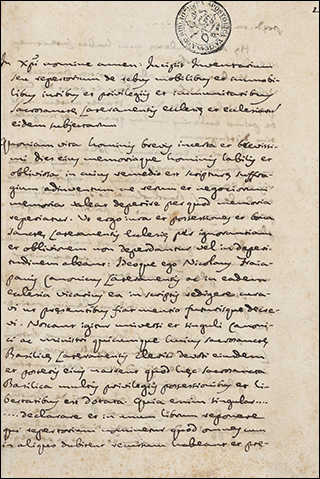 In Xpi nomine amen. Incipit Inventarium
seu repertorium de rebus mobilibus et immobi-
libus iuribus et privilegijs et immunitatibus
sacrosancte Lateranensis Ecclesie et ecclesiarum
eidem subjectarum
Quoniam vita hominis brevis incerta et brevissi-
mi dies eius memoriaque hominis labilis et
obliviosa in cuius remedio est scripture suffra-
gium adinventum ne rerum et negociorum
memoria valeat deperire per quod memoria
reperiatur. Ut ergo iura et possessiones et bona
sancte Lateranensis Ecclesie per ignorantiam
et oblivionem non dependantur vel in deperi-
tudinem abeant: Ideoque ego Nicolaus Fraia-
panis Canonicus Lateranensis ac in eadem
ecclesia Vicarius ea in scriptis redigere cura-
vi ut presentibus fiat memoria futurisque decre-
vi. Noscant igitur universi et singuli canoni-
ci ac ministri quicumque huius sacrosancte
Basilice Lateranensis clerici devoti eiusdem
et posteris eius quod hec sacrosancta
Basilica multis privilegijs possessionibus et li-
bertatibus est dotata. Quia enim singula....
..... declarare et in unum librum reponere
qui repertorium quod omnes cum
in aliquo dubitent recursum habeant et pre-